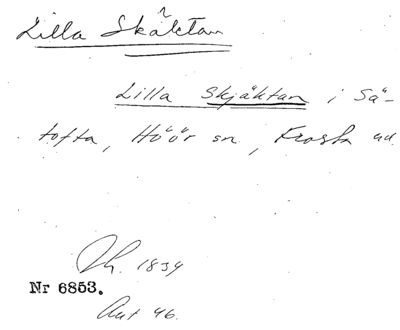 Lilla Skäktan
Lilla Skjäktan i Sä-
tofta, Höör sn, Frosta hd.
Th. 1834
Nr 6853.
Ant 46.